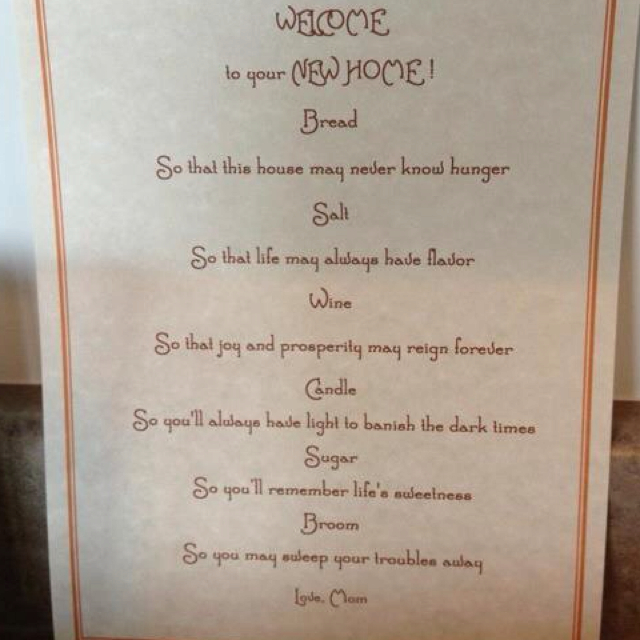 WELCOME
to your NEW HOME!
Bread
So that this house may never know hunger
Salt
So that life may always have flavor
Wine
So that joy and prosperity may reign forever
Candle
So you'll always have light to banish the dark times
Sugar
So you'll remember life's sweetness
Broom
So you may sweep your troubles away
Love, Mom